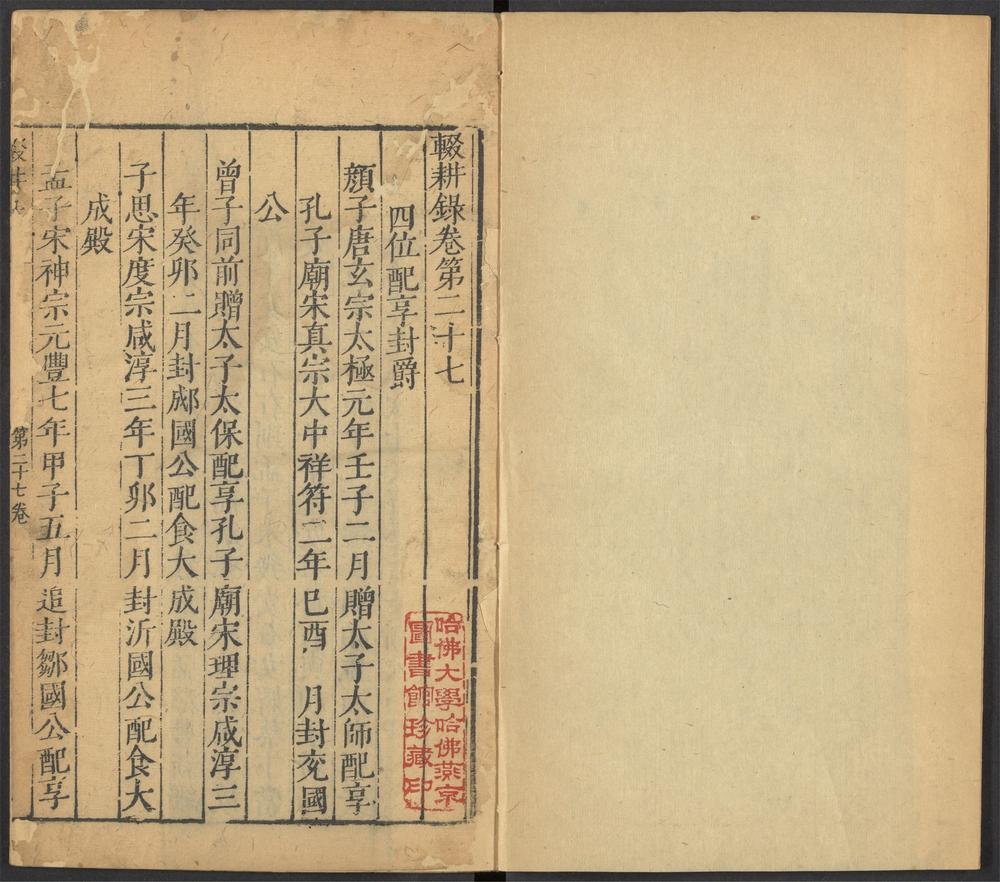 輟耕錄卷第二十七
四位配享封爵
顏子唐玄宗太極元年壬子二月贈太子太師配享
孔子廟宋真宗大中祥符二年巳酉 月封兖國
公
曾子同前贈太子太保配享孔子廟宋理宗咸淳三
年癸卯二月封郕國公配食大成殿
子思宋度宗咸淳三年丁卯二月封沂國公配食大
成殿
孟子宋神宗元豐七年甲子五月追封鄒國公配享
第二十七卷
哈佛大學哈佛燕京
圖書館珍藏印